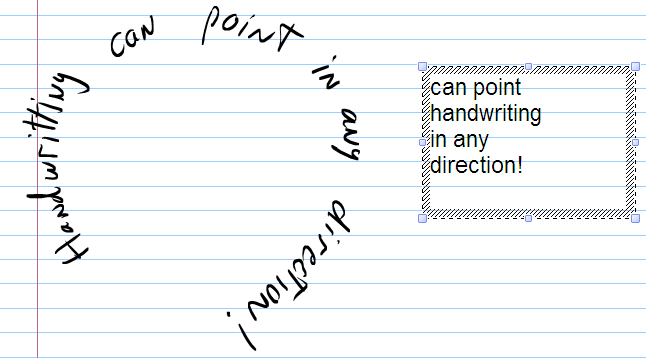 Handwritting can point in any direction!
can point
handwriting
in any
direction!